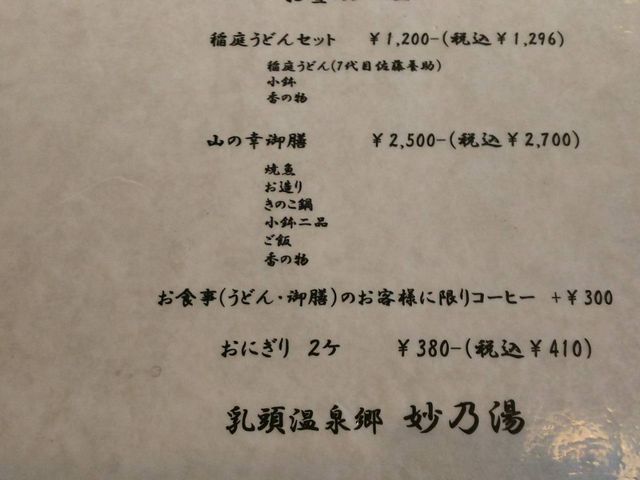 稲庭うどんセット ￥1,200-(税込￥1,296)
稲庭うどん(7代目佐藤養助)
小鉢
香の物
山の幸御膳 ￥2,500-(税込￥2,700)
焼魚
お造り
きのこ鍋
小鉢二品
ご飯
香の物
お食事(うどん・御膳)のお客様に限りコーヒー +￥300
おにぎり 2ケ ￥380-(税込￥410)
乳頭温泉郷 妙乃湯